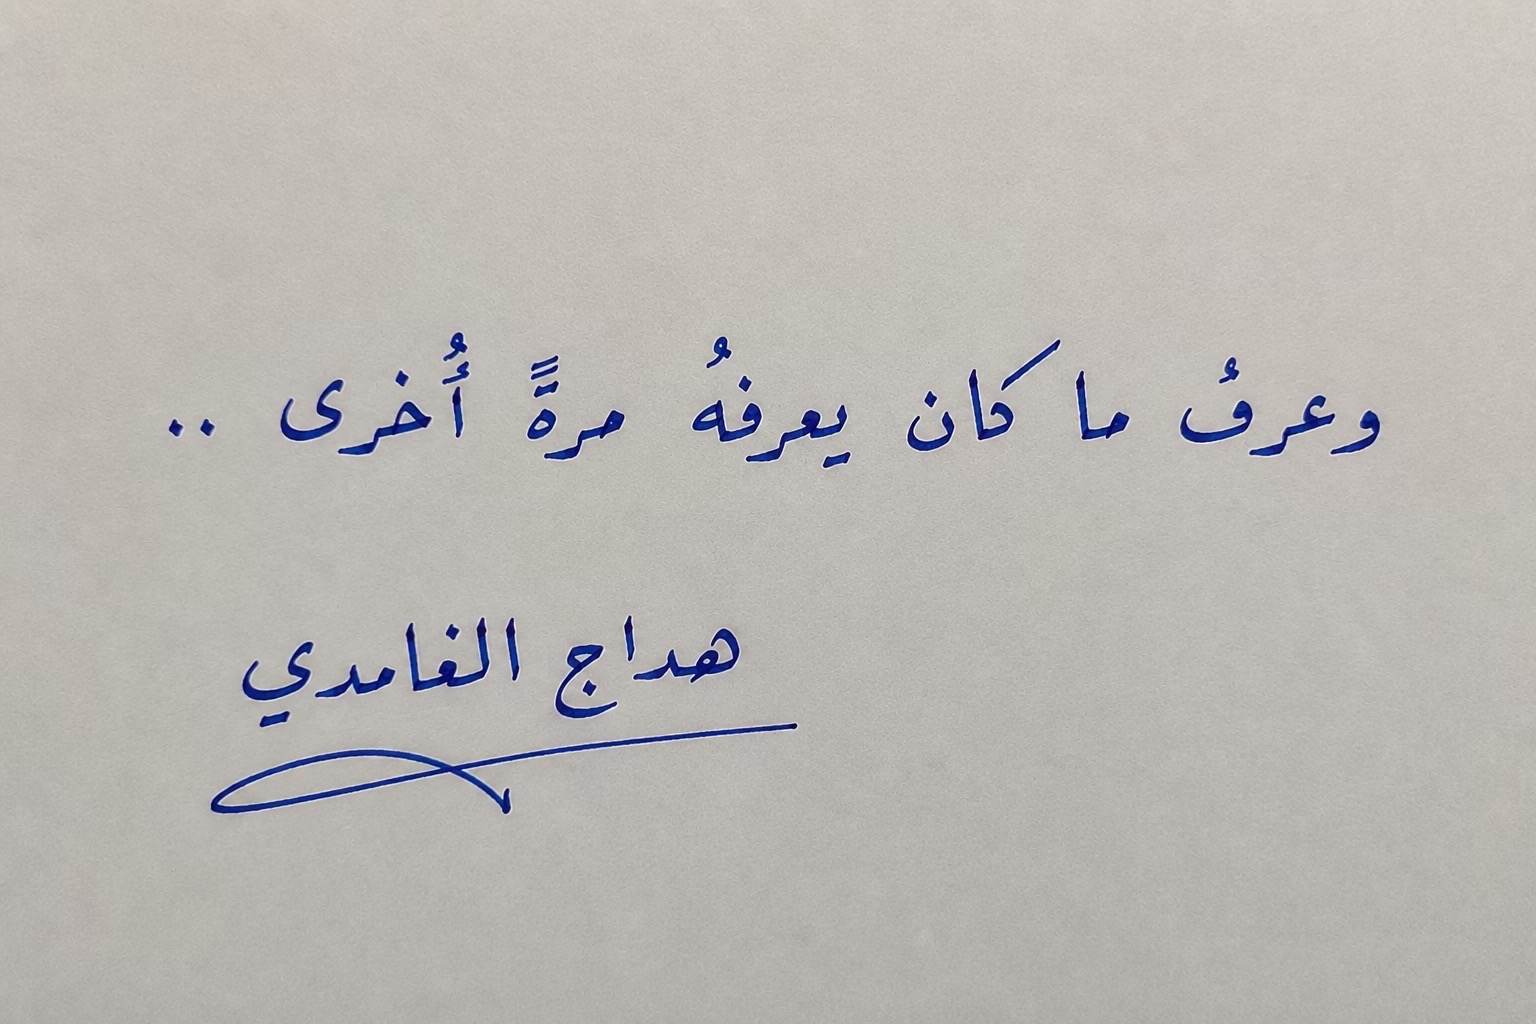 وعرفُ ما كان يعرفهُ مرةً أُخرى ..
هداج الغامدي